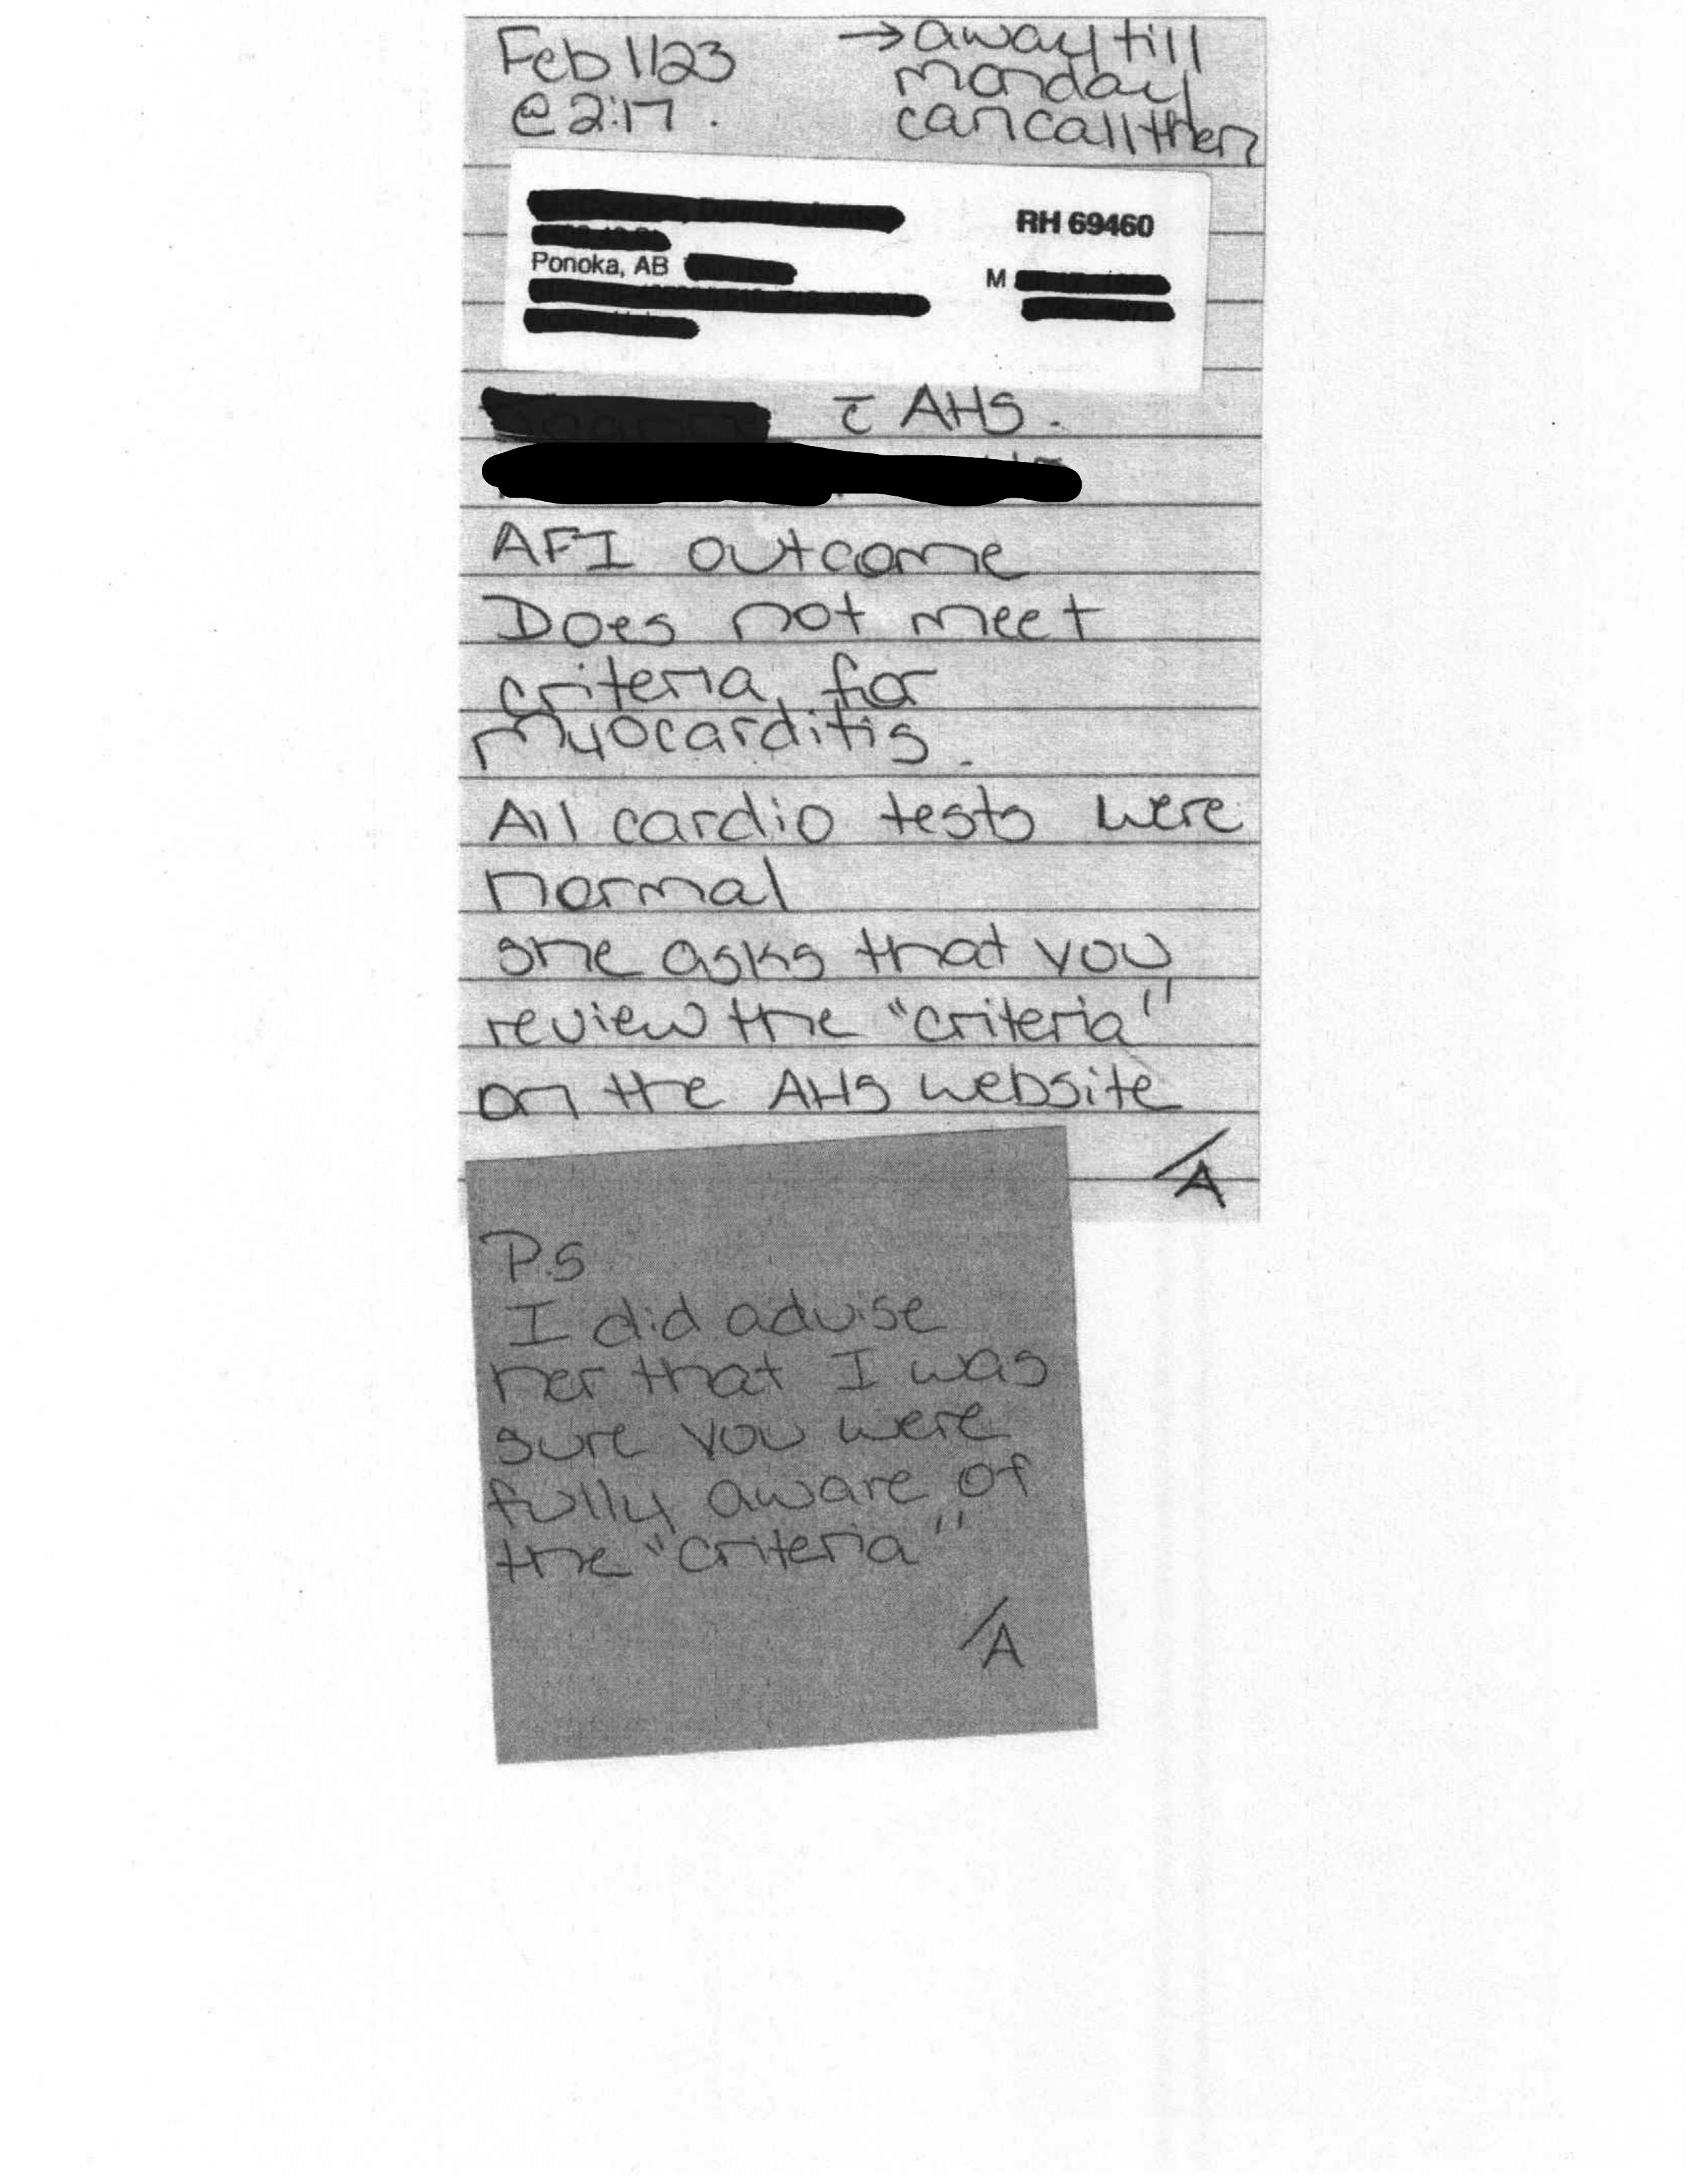 Feb 1/23
@ 2:17.
→ away till
monday
can call then
RH 69460
Ponoka, AB
M
c̄ AHS.
AFI outcome
Does not meet
criteria for
myocarditis.
All cardio tests were
normal
she asks that you
review the "criteria"
on the AHS website
/A
P.S
I did advise
her that I was
sure you were
fully aware of
the "criteria"
/A